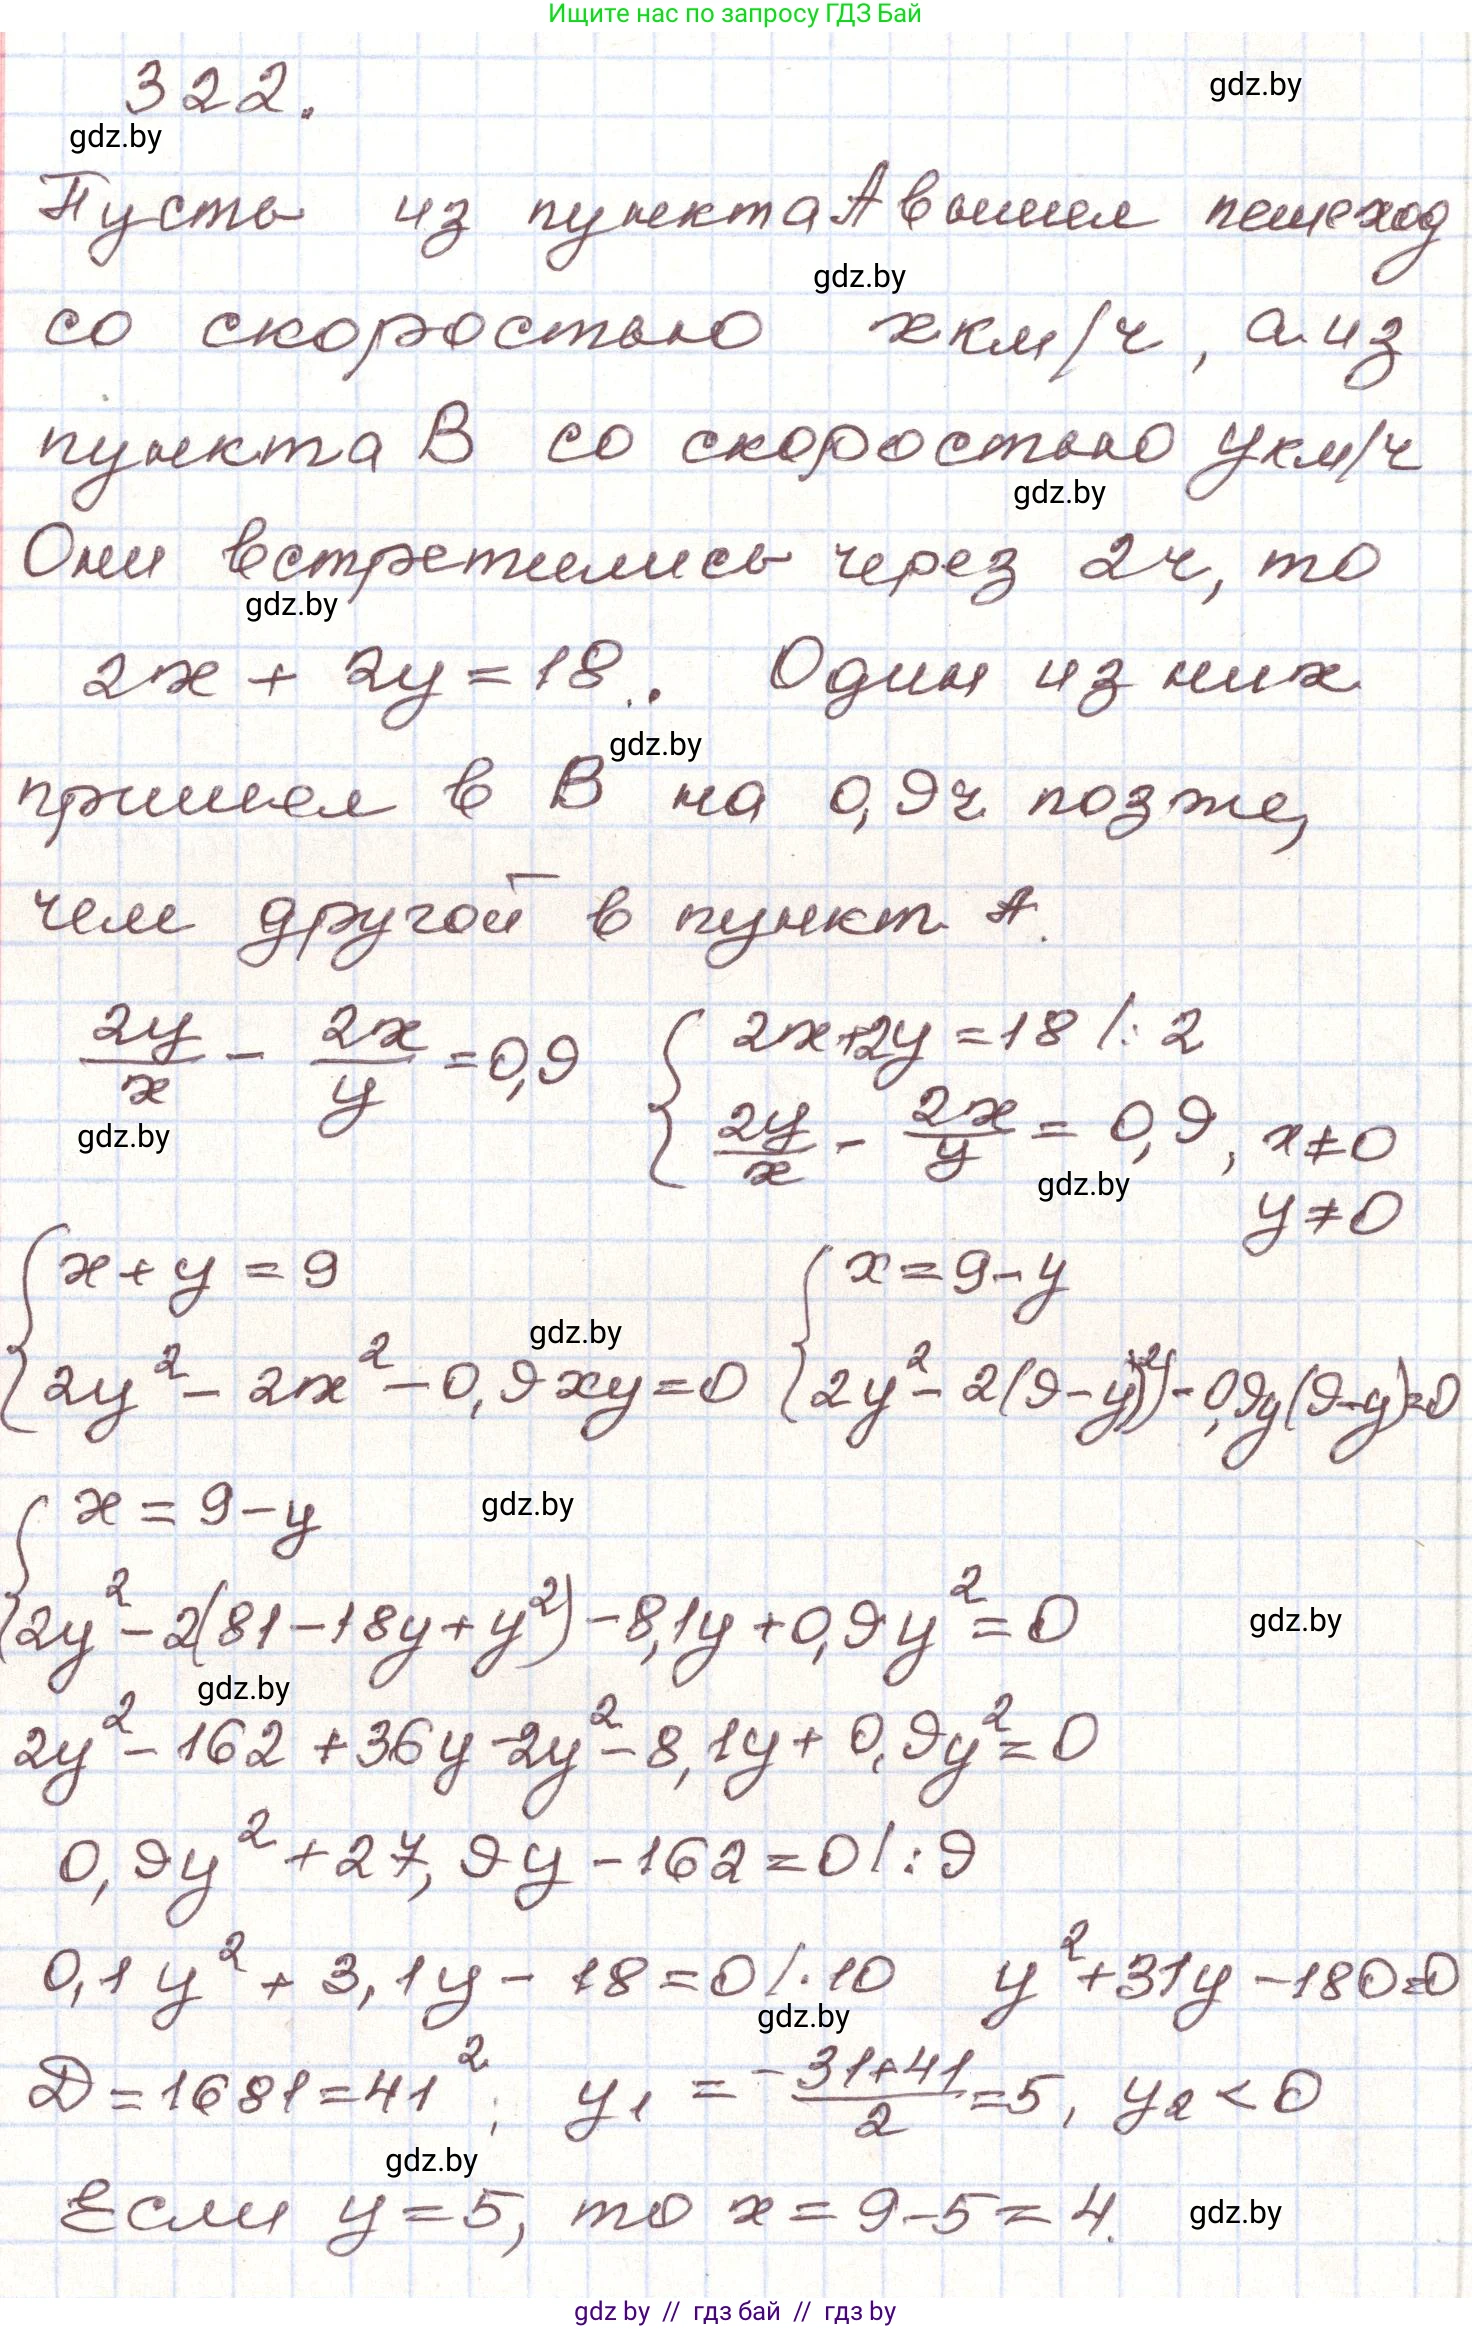 Ищите нас по запросу ГДЗ Бай
322.
gdz.by
gdz.by
Пусть из пункта А вышел пешеход
gdz.by
со скоростью x км/ч, а из
пункта В со скоростью y км/ч
gdz.by
Они встретились через 2ч, то
gdz.by
2x + 2y = 18. Один из них
gdz.by
пришел в В на 0,9ч позже,
чем другой в пункт А.
2y/x - 2x/y = 0,9 { 2x+2y = 18 |: 2
2y/x - 2x/y = 0,9, x≠0
gdz.by
gdz.by
y≠0
{ x + y = 9 { x = 9 - y
gdz.by
2y² - 2x² - 0,9xy = 0 2y² - 2(9-y)² - 0,9y(9-y)=0
{ x = 9 - y
gdz.by
2y² - 2(81 - 18y + y²) - 8,1y + 0,9y² = 0
gdz.by
gdz.by
2y² - 162 + 36y - 2y² - 8,1y + 0,9y² = 0
0,9y² + 27,9y - 162 = 0 |: 9
0,1y² + 3,1y - 18 = 0 |·10 y² + 31y - 180 = 0
gdz.by
D = 1681 = 41²; y₁ = -31+41/2 = 5, y₂ < 0
gdz.by
Если y = 5, то x = 9 - 5 = 4.
gdz.by
gdz by // гдз бай // гдз by